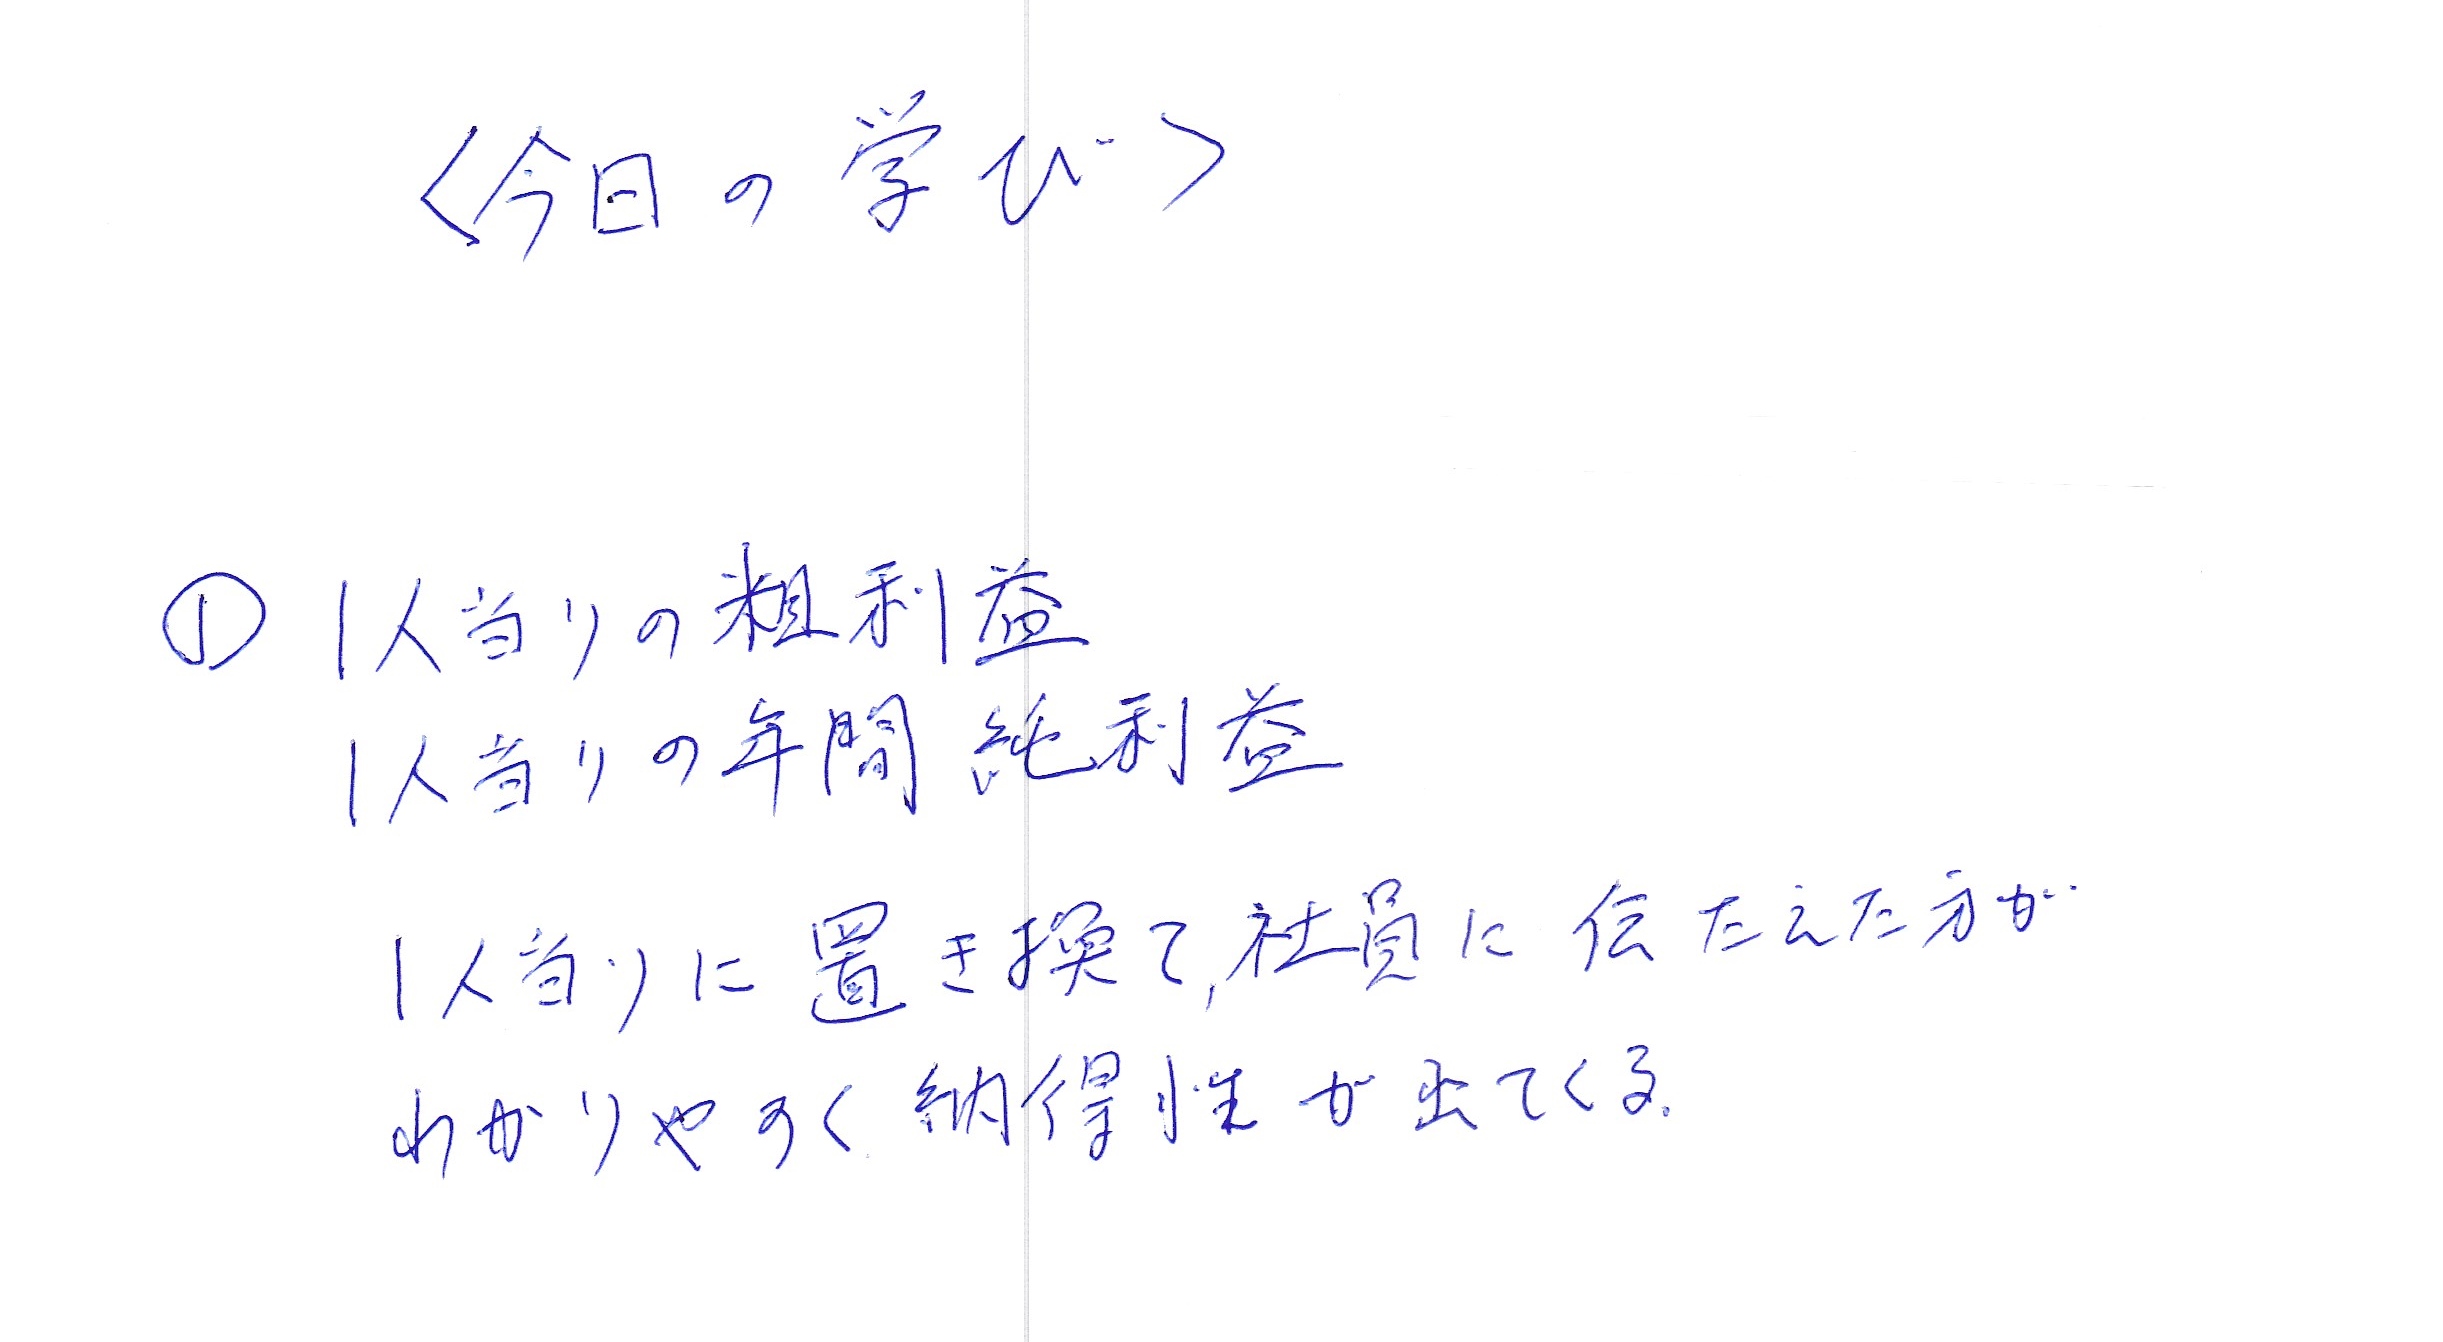 〈今日の学び〉
① 1人当りの粗利益
1人当りの年間純利益
1人当りに置き換て,社員に伝たえた方が
わかりやすく納得性が出てくる.